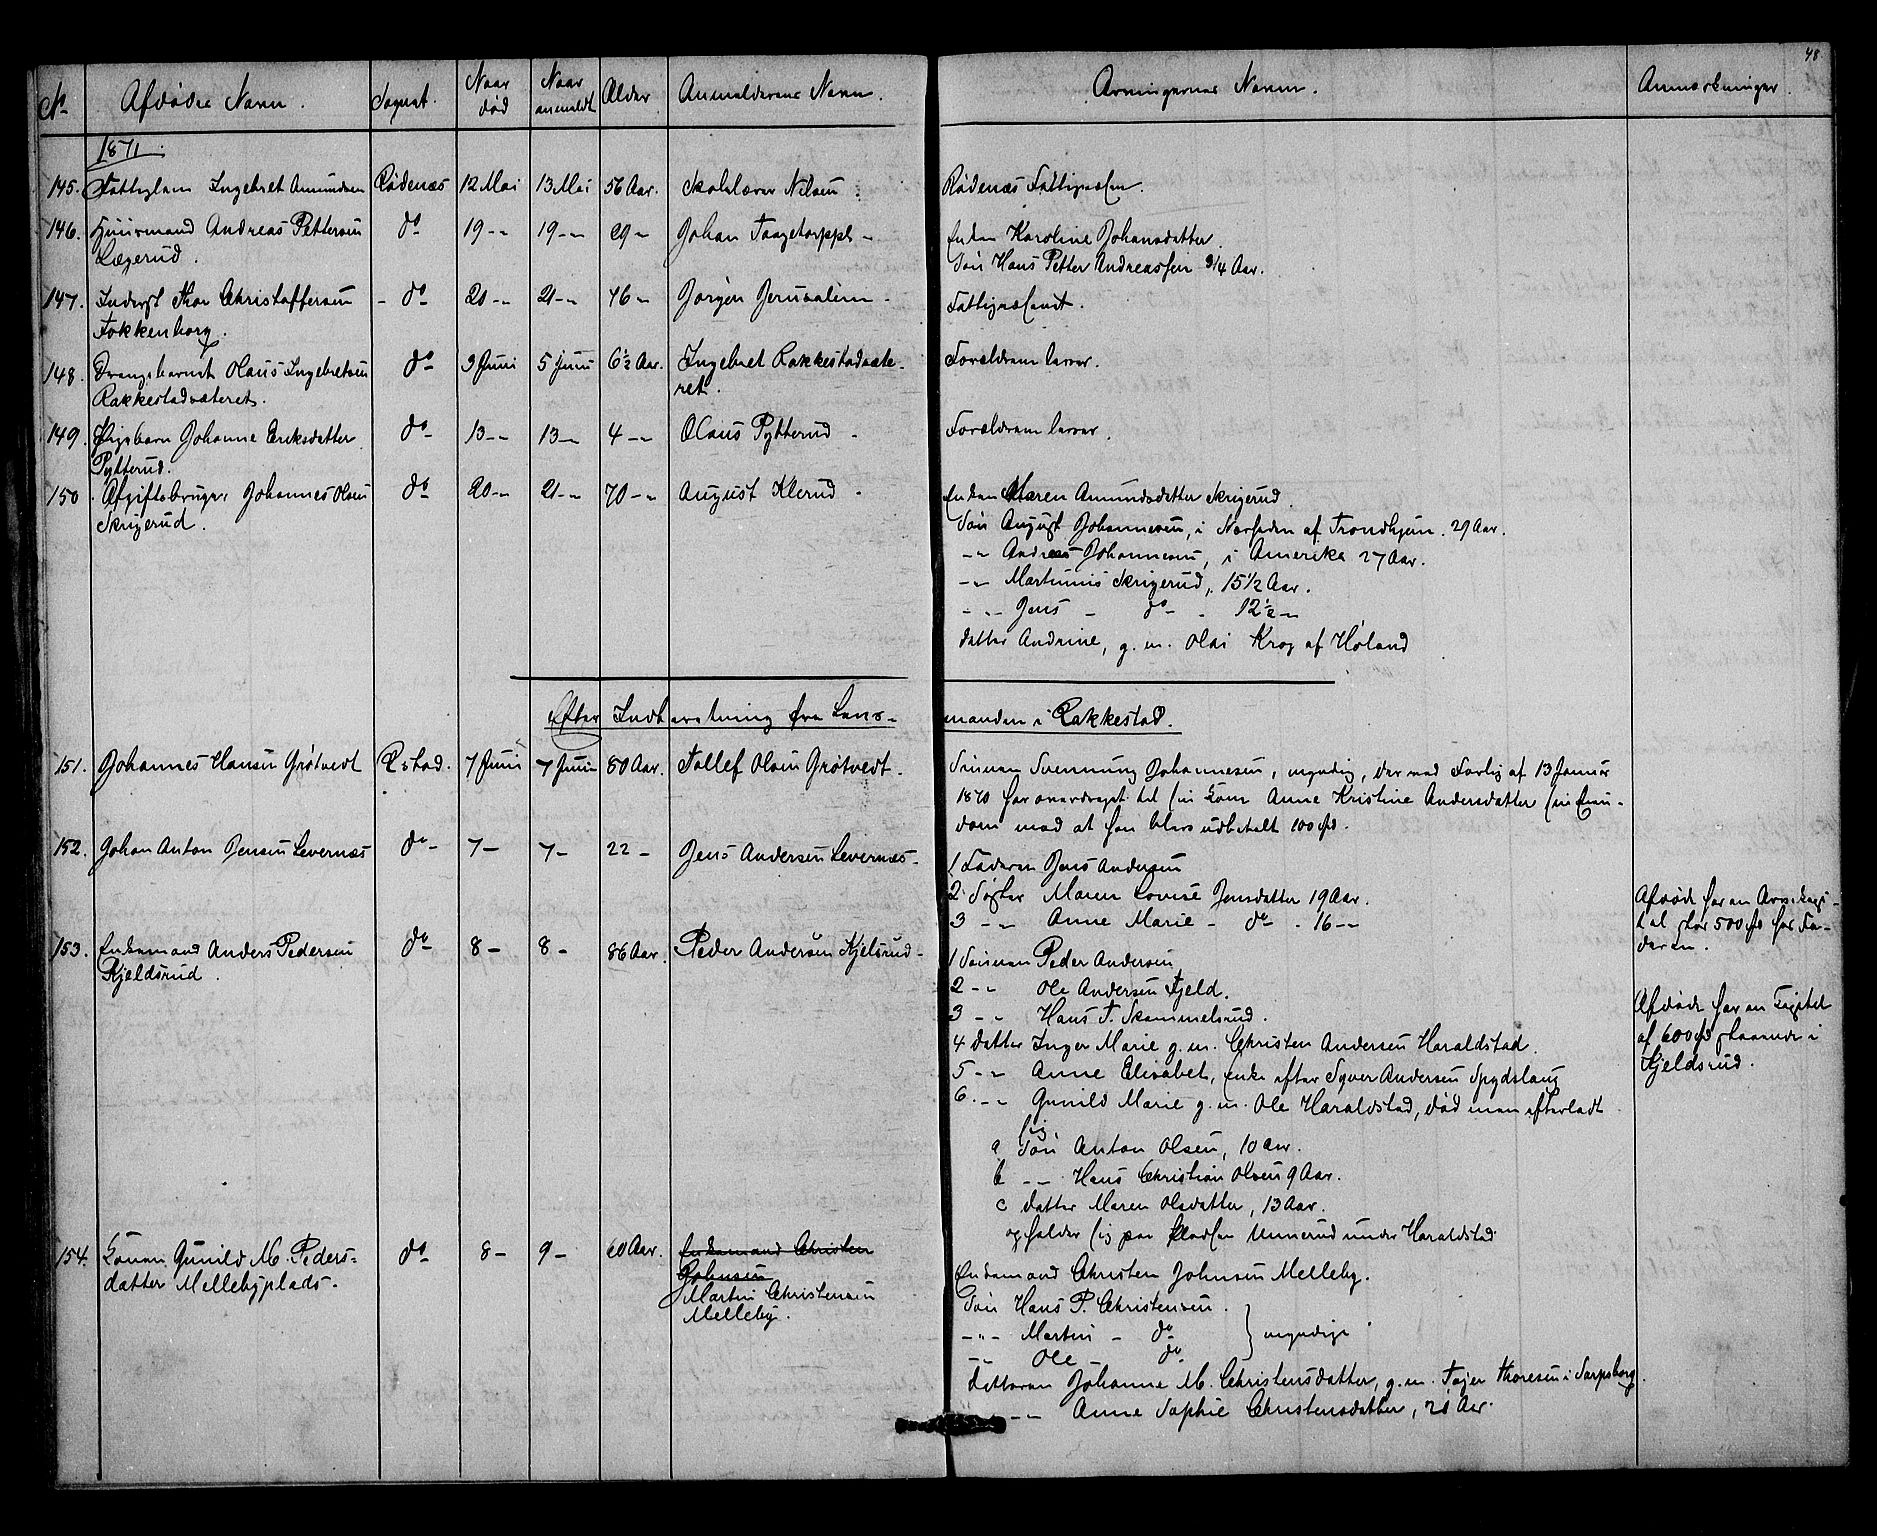 48.
No Afdødes Navn. Sognet. Naar død Naar anmeldt Alder Anmelderens Navn. Arvingernes Navne. Anmærkninger
1871.
145. Fattiglem Ingebret Amundsen Rødenæs 12 Mai 13 Mai 56 Aar. Skolelærer Nilsen Rødenæs Fattigvæsen.
146. Huusmand Andreas Pettersen do 19 -"- 19 -"- 29 -"- Johan Taagetorppe - Enken Karoline Johansdatter.
Lægerud. Søn Hans Petter Andreassen 3/4 Aar.
147. Inderst Thor Christoffersen - do 20 -"- 21 -"- 46 - Jørgen Jerusalem - Fattigvæsenet.
Fokkenborg.
148. Drengebarnet Olaus Ingebretsen do 3 Juni 5 Juni 6½ Aar. Ingebret Rakkestadsæte- Forældrene lever.
Rakkestadsæteret. ret.
149. Pigebarn Johanne Eriksdatter do 13 -"- 13 -"- 4 -"- Olaus Pytterud - Forældrene lever.
Pytterud.
150. Afgiftsbruger Johannes Olsen do 20 -"- 21 -"- 70 -"- August Klerud - Enken Maren Amundsdatter Skrigerud.
Skrigerud. Søn August Johannesen, i Nærheden af Trondhjem. 29 Aar.
-"- Andreas Johannesen, i Amerika 27 Aar.
-"- Martinius Skrigerud, 15 1/2 Aar.
-"- Jens - do - 12½ -"-
datter Andrine, g. m. Olai Krog af Høland
Efter Indberetning fra Lens- manden i Rakkestad.
151. Johannes Hansen Grøtvedt R.stad. 7 Juni 7 Juni 80 Aar. Tollef Olsen Grøtvedt - Sønnen Svennung Johannesen, myndig, der ved Forlig af 13 Januar
1870 har overdraget til sin Kone Anne Kristine Andersdatter sin Eien-
dom mod at han blev udbetalt 100 spd.
152. Johan Anton Jensen Levernæs do - 7 - 7 - 22 - Jens Andersen Levernæs - 1 Faderen Jens Andersen
2 Søster Maren Lovise Jensdatter 19 Aar. Afdøde har en Arvekapi-
3 -"- Anne Marie - do - 16 -"- tal stor 500 spd hos Fa-
deren.
153. Enkemand Anders Pedersen do 8 - 8 - 86 Aar. Peder Andersen Kjelsrud - 1 Sønnen Peder Andersen
Kjeldsrud. 2 -"- Ole Andersen Fjeld.
3 -"- Hans T. Skammelsrud. Afdøde har en
4 datter Inger Marie g. m. Christen Andersen Haraldstad. af 600 spd staaende i
5 -"- Anne Elisabet, enke efter Syver Andersen Spydslaug Kjeldsrud.
6 -"- Gunild Marie g. m. Ole Haraldstad, død men efterladt
sig
a Søn Anton Olsen, 10 Aar.
b -"- Hans Christian Olsen 9 Aar.
c datter Maren Olsdatter, 13 Aar.
og holder sig paa Pladsen Unnerud under Haraldstad
154. Konen Gunild M. Peders- do 8 - 9 - 60 Aar. Enkemand Christen Enkemand Christen Johnsen Melleby.
datter Mellebyplads. Johnsen
Martin Christensen Søn Hans P. Christensen.
Melleby. -"- Martin - do } myndige
-"- Ole - do
datteren Johanne M. Christensdatter, g. m. Tajer Thoresen i Sarpsborg.
-"- Anne Sophie Christensdatter, 21 Aar.